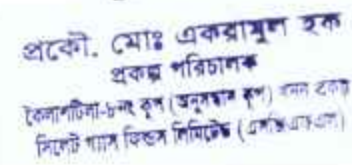 প্রকৌ. মোঃ একরামুল হক
প্রকল্প পরিচালক
কৈলাশটিলা-৮নং কূপ (অনুসন্ধান কূপ) খনন প্রকল্প
সিলেট গ্যাস ফিল্ডস লিমিটেড (এসজিএফএল)